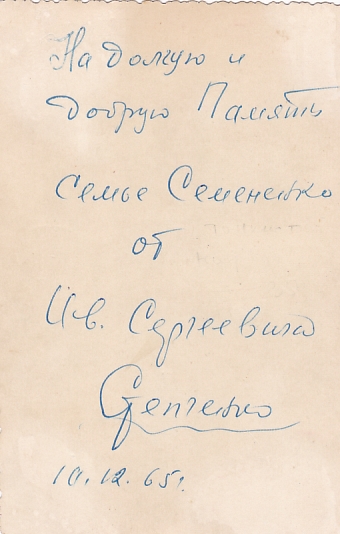 На долгую и
добрую Память
семье Семененко
от
Ив. Сергеевича
10.12.65г.